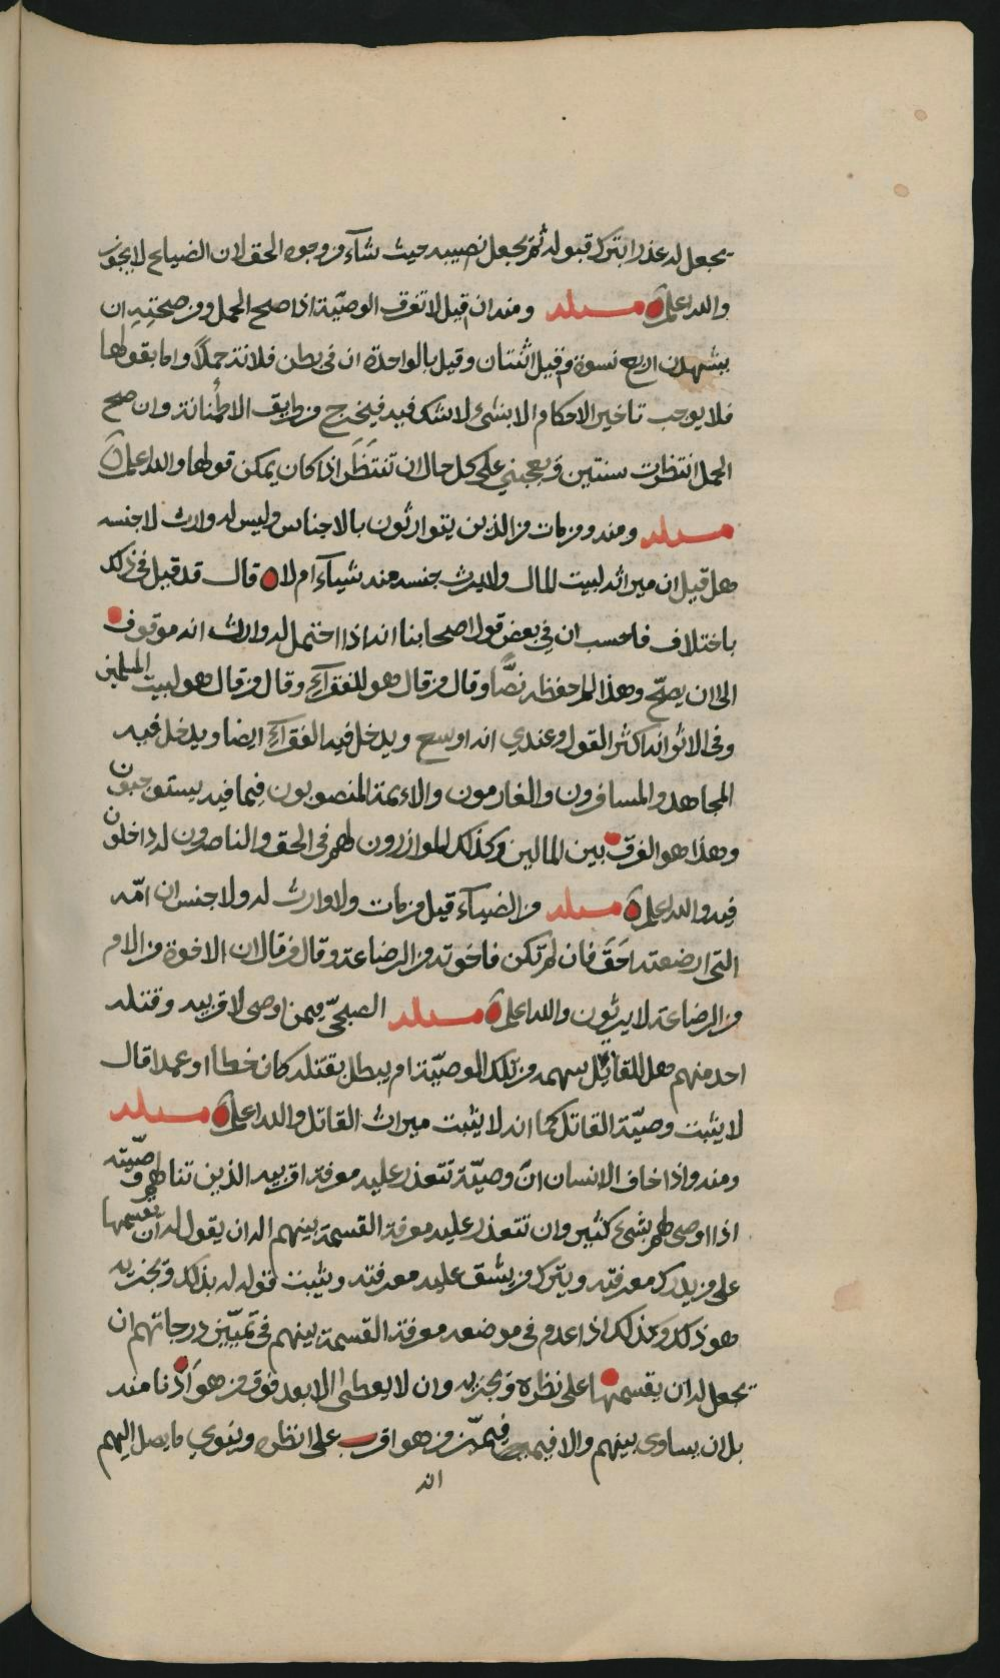 يجعل له عذرا بترك قبوله ثم يجعل نصيبه حيث شاء من وجوه الحق لان الضياع لا يجوز
والله اعلم مسئلة ومنه ان قيل لا توقف الوصيّة اذا صح الحمل ومن صحتِهِ ان
يشهدن اربع نسوة وقيل اثنتان وقيل بالواحدة ان في بطن فلانة حملاً واما بقولها
فلا يوجب تاخير الاحكام الا بشئ لا شك فيه فيخرج من طريق الاطمئنانة وان صح
الحمل انتظرت سنتين ويعجبني على كل حال ان تنتَظَر اذا كان يمكن قولها والله اعلم
مسئلة ومنه ومن مات من الذين يتوارثون بالاجناس وليس له وارث لا جنسه
هل قيل ان ميراثه لبيت المال ولا يرث جنسه منه شيآء ام لا قال قد قيل في ذلك
باختلاف فاحسب ان في بعض قول اصحابنا انه اذا احتمل له وارث انه موقوف
الى ان يصحّ وهذا لما حفظه نصًّا وقال من قال هو للفقرآء وقال من قال هو لبيت المسلمين
وفي الاثر انه اكثر القول وعندي انه اوسع ويدخل فيه الفقرآء ايضا ويدخل فيه
المجاهد والمسافرون والغارمون والائمة المنصوبون فيما فيه يستوجبون
وهذا هو الفرق بين المالين وكذلك الموازرون لهم في الحق والناصرون له داخلون
فيه والله اعلم مسئلة من الضيآء قيل من مات ولا وارث له ولا جنس ان امّه
التي ارضعته احَقّ فان لم تكن فاخوته من الرضاعة وقال من قال ان الاخوة من الام
من الرضاعة لا يرثون والله اعلم مسئلة الصبحيّ فيمن اوصى لاقربيه وقتله
احد منهم هل للقاتل سهمه من تلك الوصيّة ام يبطل بقتله كان خطاا وعمدا قال
لا يثبت وصيّة القاتل كما انه لا يثبت ميراث القاتل والله اعلم مسئلة
ومنه واذا خاف الانسان انّ وصيّة تتعذر عليه معرفة اقربيه الذين تنالهم وصيّته
اذا اوصى لهم بشئ كثير وان تتعذر عليه معرفة القسمة بينهم اله ان يقول له ان يقسمها
على من يدرك معرفته ويترك من يشق عليه معرفته ويثبت قوله له بذلك ويجزيه
هو ذلك وكذلك اذا عدم في موضعه معرفة القسمة بينهم في تمييز درجاتهم ان
يجعل له ان يقسمها على نظره ويجزيه وان لا يعطى الابعد فوق من هو اَدْنا منه
بل ان يساوى بينهم والا فيميّز من هو اقرب على انظره وينوي ما يصل اليهم
انه